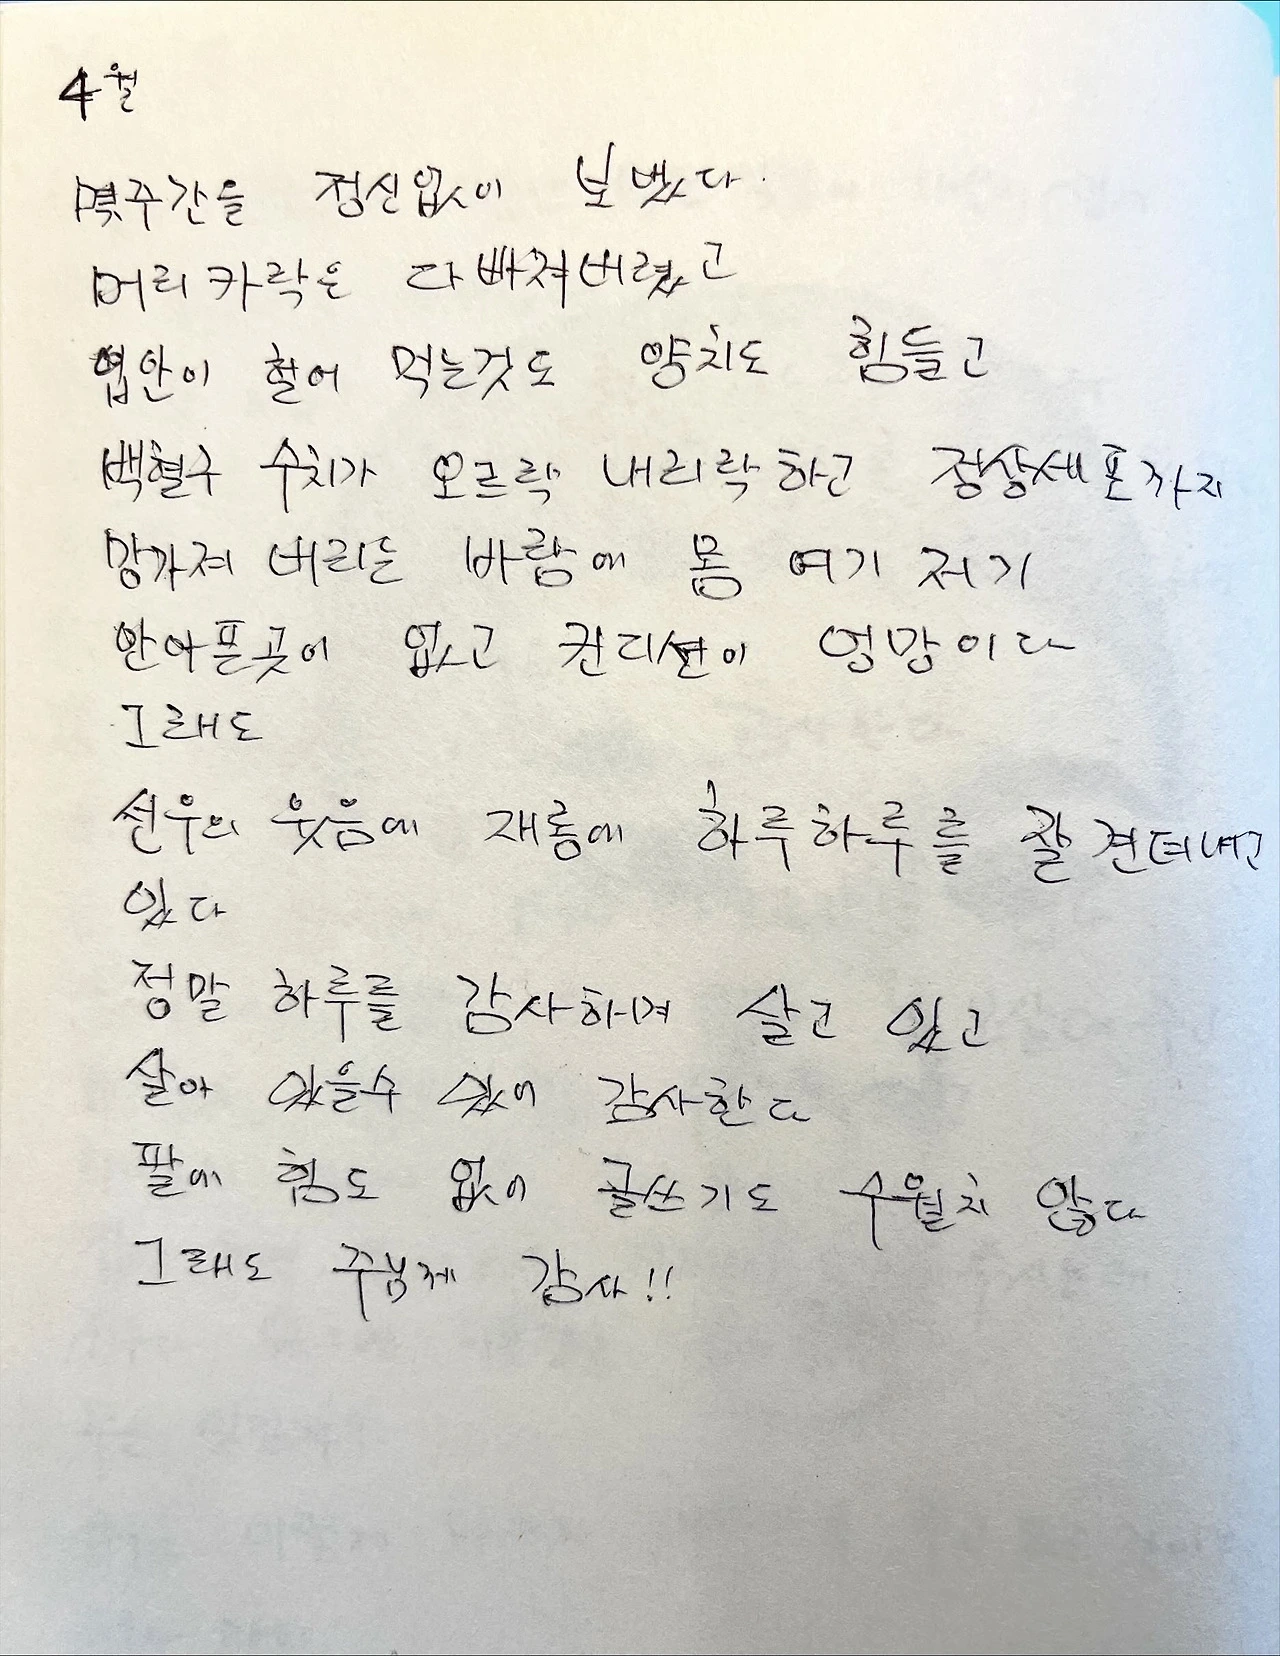 4월
몇주간을 정신없이 보냈다.
머리카락은 다 빠져버렸고
입안이 헐어 먹는것도 양치도 힘들고
백혈구 수치가 오르락 내리락 하고 정상세포까지
망가져 버리는 바람에 몸 여기 저기
안아픈곳이 없고 컨디션이 엉망이다
그래도
선우의 웃음에 재롱에 하루하루를 잘 견뎌내고
있다
정말 하루를 감사하며 살고 있고
살아 있을수 있어 감사한다
팔에 힘도 없어 글쓰기도 수월치 않다
그래도 주님께 감사!!